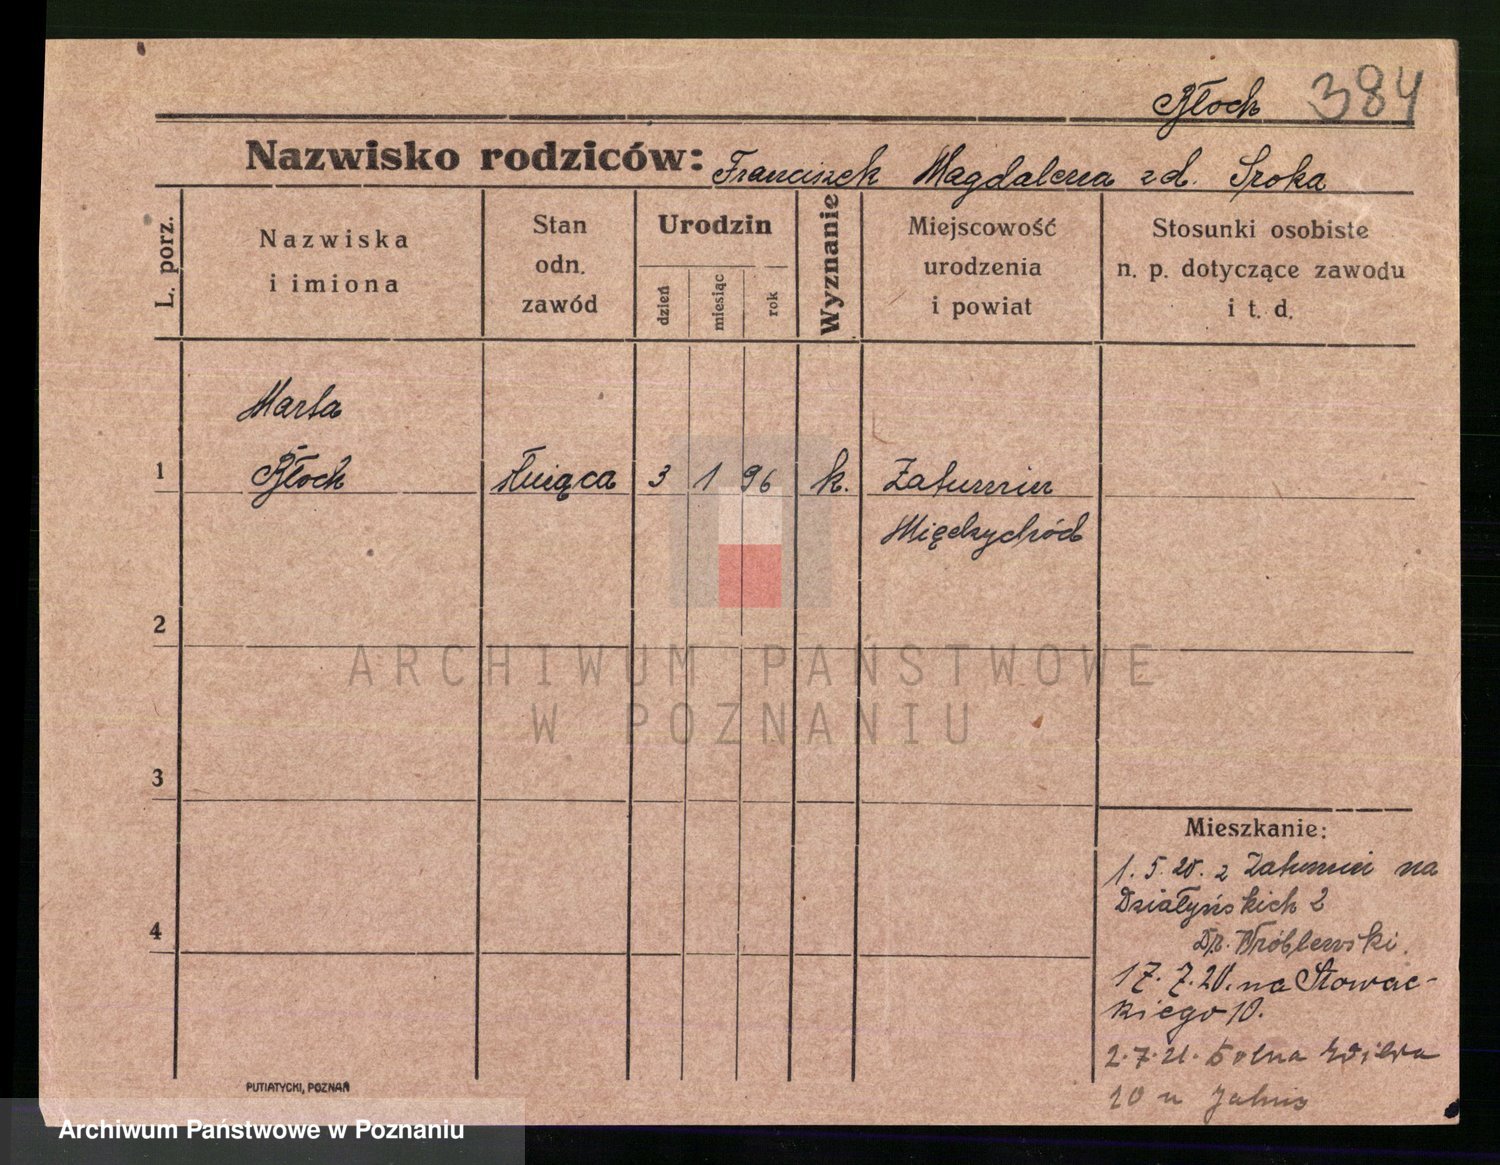 Błoch 384
Nazwisko rodziców: Franciszek Magdalena zd. Sroka
L. porz.
Nazwiska
i imiona
Stan
odn.
zawód
Urodzin
dzień
miesiąc
rok
Wyznanie
Miejscowość
urodzenia
i powiat
Stosunki osobiste
n. p. dotyczące zawodu
i t. d.
Marta
1 Błoch służąca 3 1 96 k. Zatumin
Międzychód
2
ARCHIWUM PAŃSTWOWE
W POZNANIU
3
Mieszkanie:
1. 5. 20. z Zatumin na
Działyńskich 2
4
Dr. Wróblewski.
17. 7. 20. na Słowac-
kiego 10.
2. 7. 21. Dolna Wilda
10 u
PUTIATYCKI, POZNAŃ
Archiwum Państwowe w Poznaniu